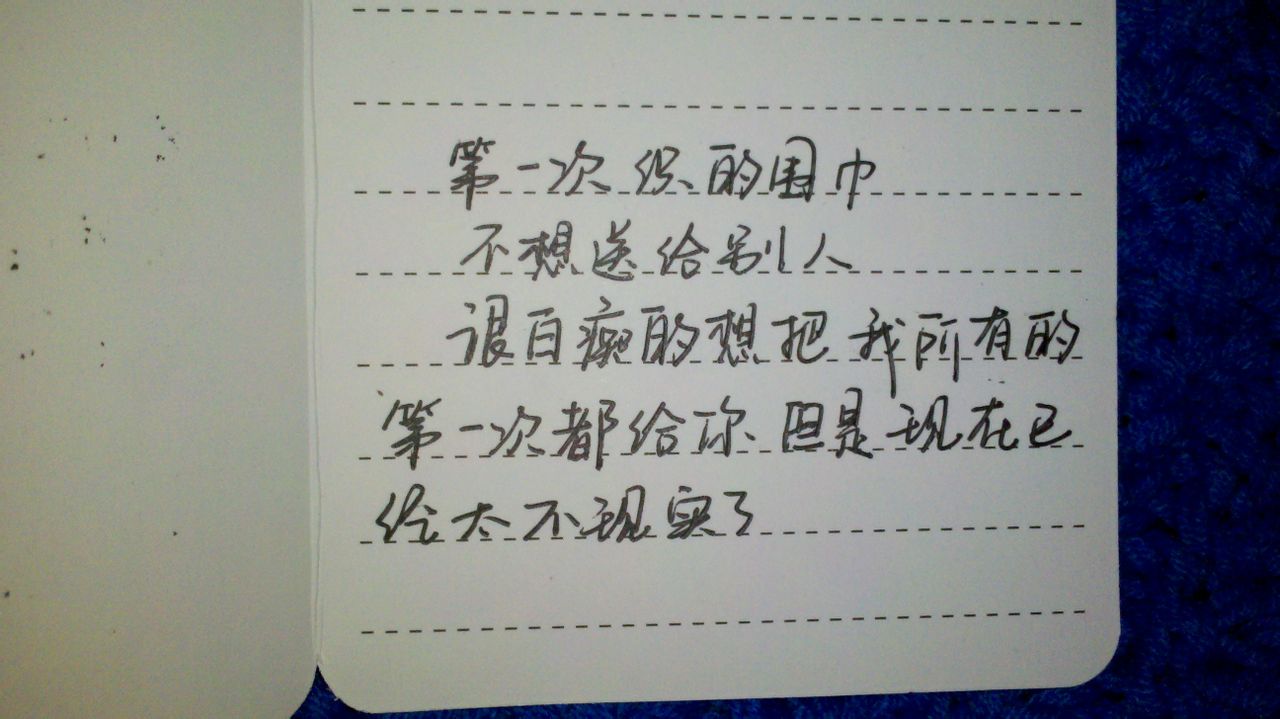 第一次织的围巾
不想送给别人
很白痴的想把我所有的
第一次都给你但是现在已
经太不现实了